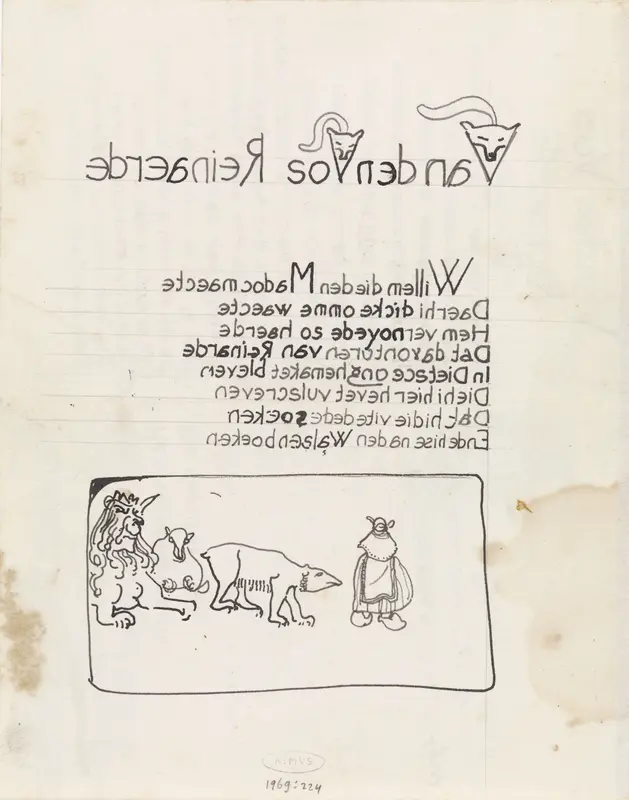 Van den Vos Reinaerde
Willem die den Madoc maecte
Daer hi dicke omme waecte
Hem vernoyede so haerde
Dat davonturen van Reinarde
In Dietsce onghemaket bleven
Die hi hier hevet vulscreven
Dat hi die vite dede soeken
Ende hise na den Walscen boeken
1969:224